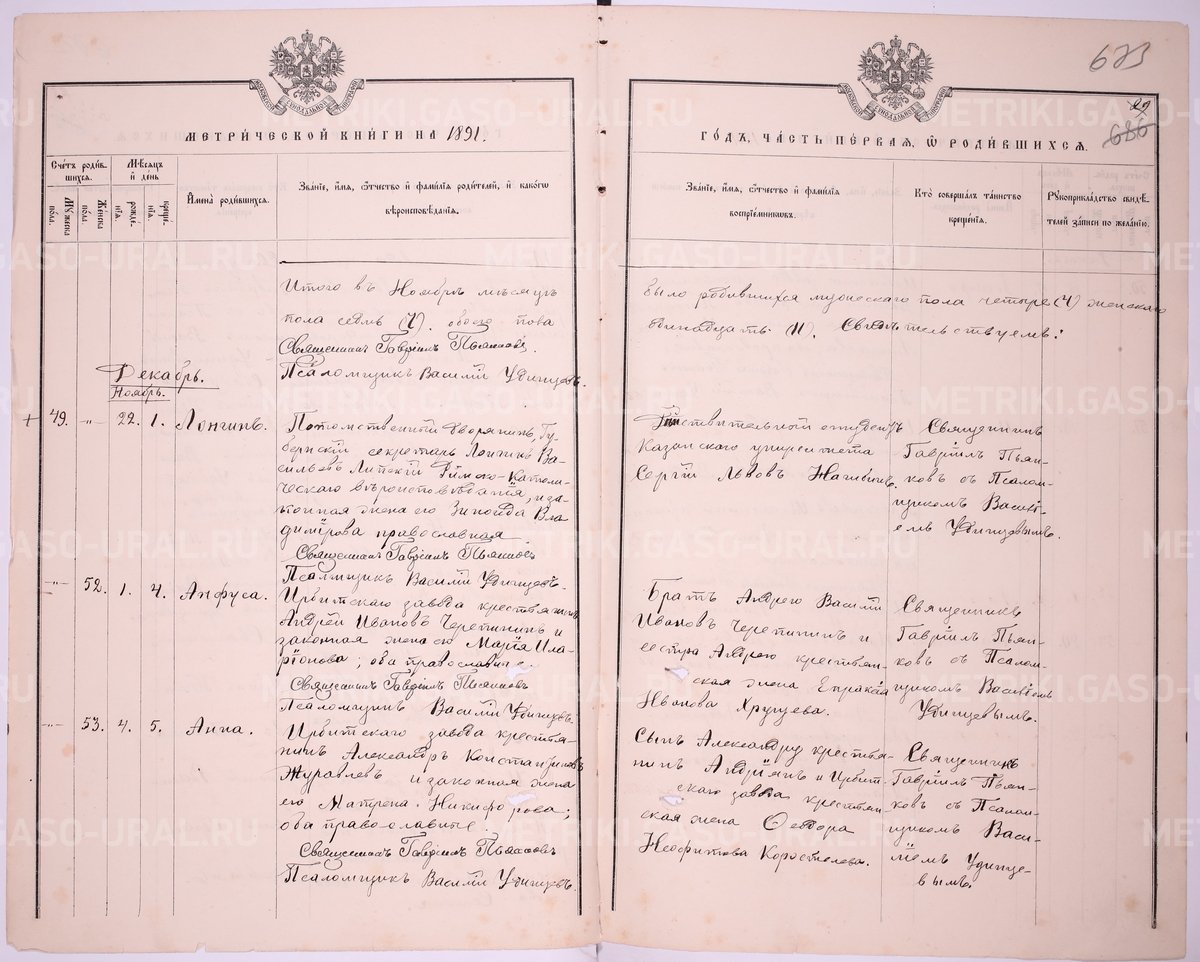 623
49
686
МЕТРИЧЕСКОЙ КНИГИ НА 1891.
ГОДЪ, ЧАСТЬ ПЕРВАЯ, Ѿ РОДИВШИХСЯ.
Счетъ родившихся.
Мужеска пола.
Женска пола.
Мѣсяцъ и день
рожденія.
крещенія.
Имена родившихся.
Званіе, имя, отчество и фамилія родителей, и какого вѣроисповѣданія.
Званіе, имя, отчество и фамилія воспріемниковъ.
Кто совершалъ таинство крещенія.
Рукоприкладство свидѣтелей записи по желанію.
Итого въ Ноябрѣ мѣсяцѣ было родившихся мужескаго пола четыре (4) женскаго
пола семь (7). обоего пола одинадцать (11). Свидѣтельствуемъ:
Священникъ Гавріилъ Пьянковъ.
Псаломщикъ Василій Удинцевъ.
Декабрь.
Ноябрь.
49. -"- 22. 1. Лонгинъ.
Потомственный Дворянинъ, Гу-
бернскій секретарь Лонгинъ Ва-
сильевъ Липскій Римско-Католи-
ческаго вѣроисповѣданія, и за-
конная жена его Зинаида Вла-
димірова православная.
Священникъ Гавріилъ Пьянковъ
Псаломщикъ Василій Удинцевъ.
Дѣйствительный студентъ
Казанскаго университета
Сергій Львовъ Нагибинъ
Священникъ
Гавріилъ Пьян-
ковъ съ Псалом-
щикомъ Васи-
емъ Удинцевымъ.
-"- 52. 1. 4. Анфуса.
Ирбитскаго завода крестьянинъ
Андрей Ивановъ Черепининъ и
законная жена его Марія Ила-
ріонова; оба православные.
Священникъ Гавріилъ Пьянковъ
Псаломщикъ Василій Удинцевъ.
Братъ Андрею Василій
Ивановъ Черепининъ и
сестра Андрею крестьян-
ская жена Епраксія
Иванова Хрущева.
Священникъ
Гавріилъ Пьян-
ковъ съ Псалом-
щикомъ Василіемъ
Удинцевымъ.
-"- 53. 4. 5. Анна.
Ирбитскаго завода крестья-
нинъ Александръ Константиновъ
Журавлевъ и законная жена
его Матрена Никифорова;
оба православные.
Священникъ Гавріилъ Пьянковъ
Псаломщикъ Василій Удинцевъ.
Сынъ Александру крестья-
нинъ Андріянъ и Ирбит-
скаго завода крестьян-
ская жена Ѳеодора
Неофитова Коростелева.
Священникъ
Гавріилъ Пьян-
ковъ съ Псалом-
щикомъ Васи-
ліемъ Удинце-
вымъ.
METRIKI.GASO-URAL.RU